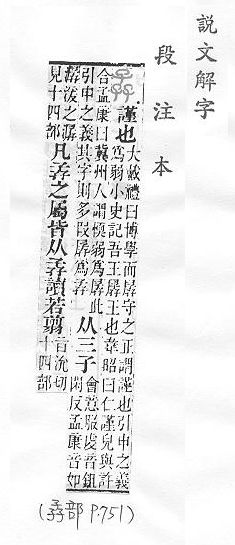 說文解字
段注本
孨
謹也
大戴禮曰博學而孱守之正謂謹也引中之義
爲弱小史記吾王孱王也韋昭曰仁謹皃與許
合孟康曰冀州人謂愞弱爲孱此
引中之義其字則多叚孱爲孨
从三子
會意服虔音鉏
閑反孟康音如
潺湲之潺
見十四部
凡孨之屬皆从孨讀若翦
旨沇切
十四部
(孨部 P.751)